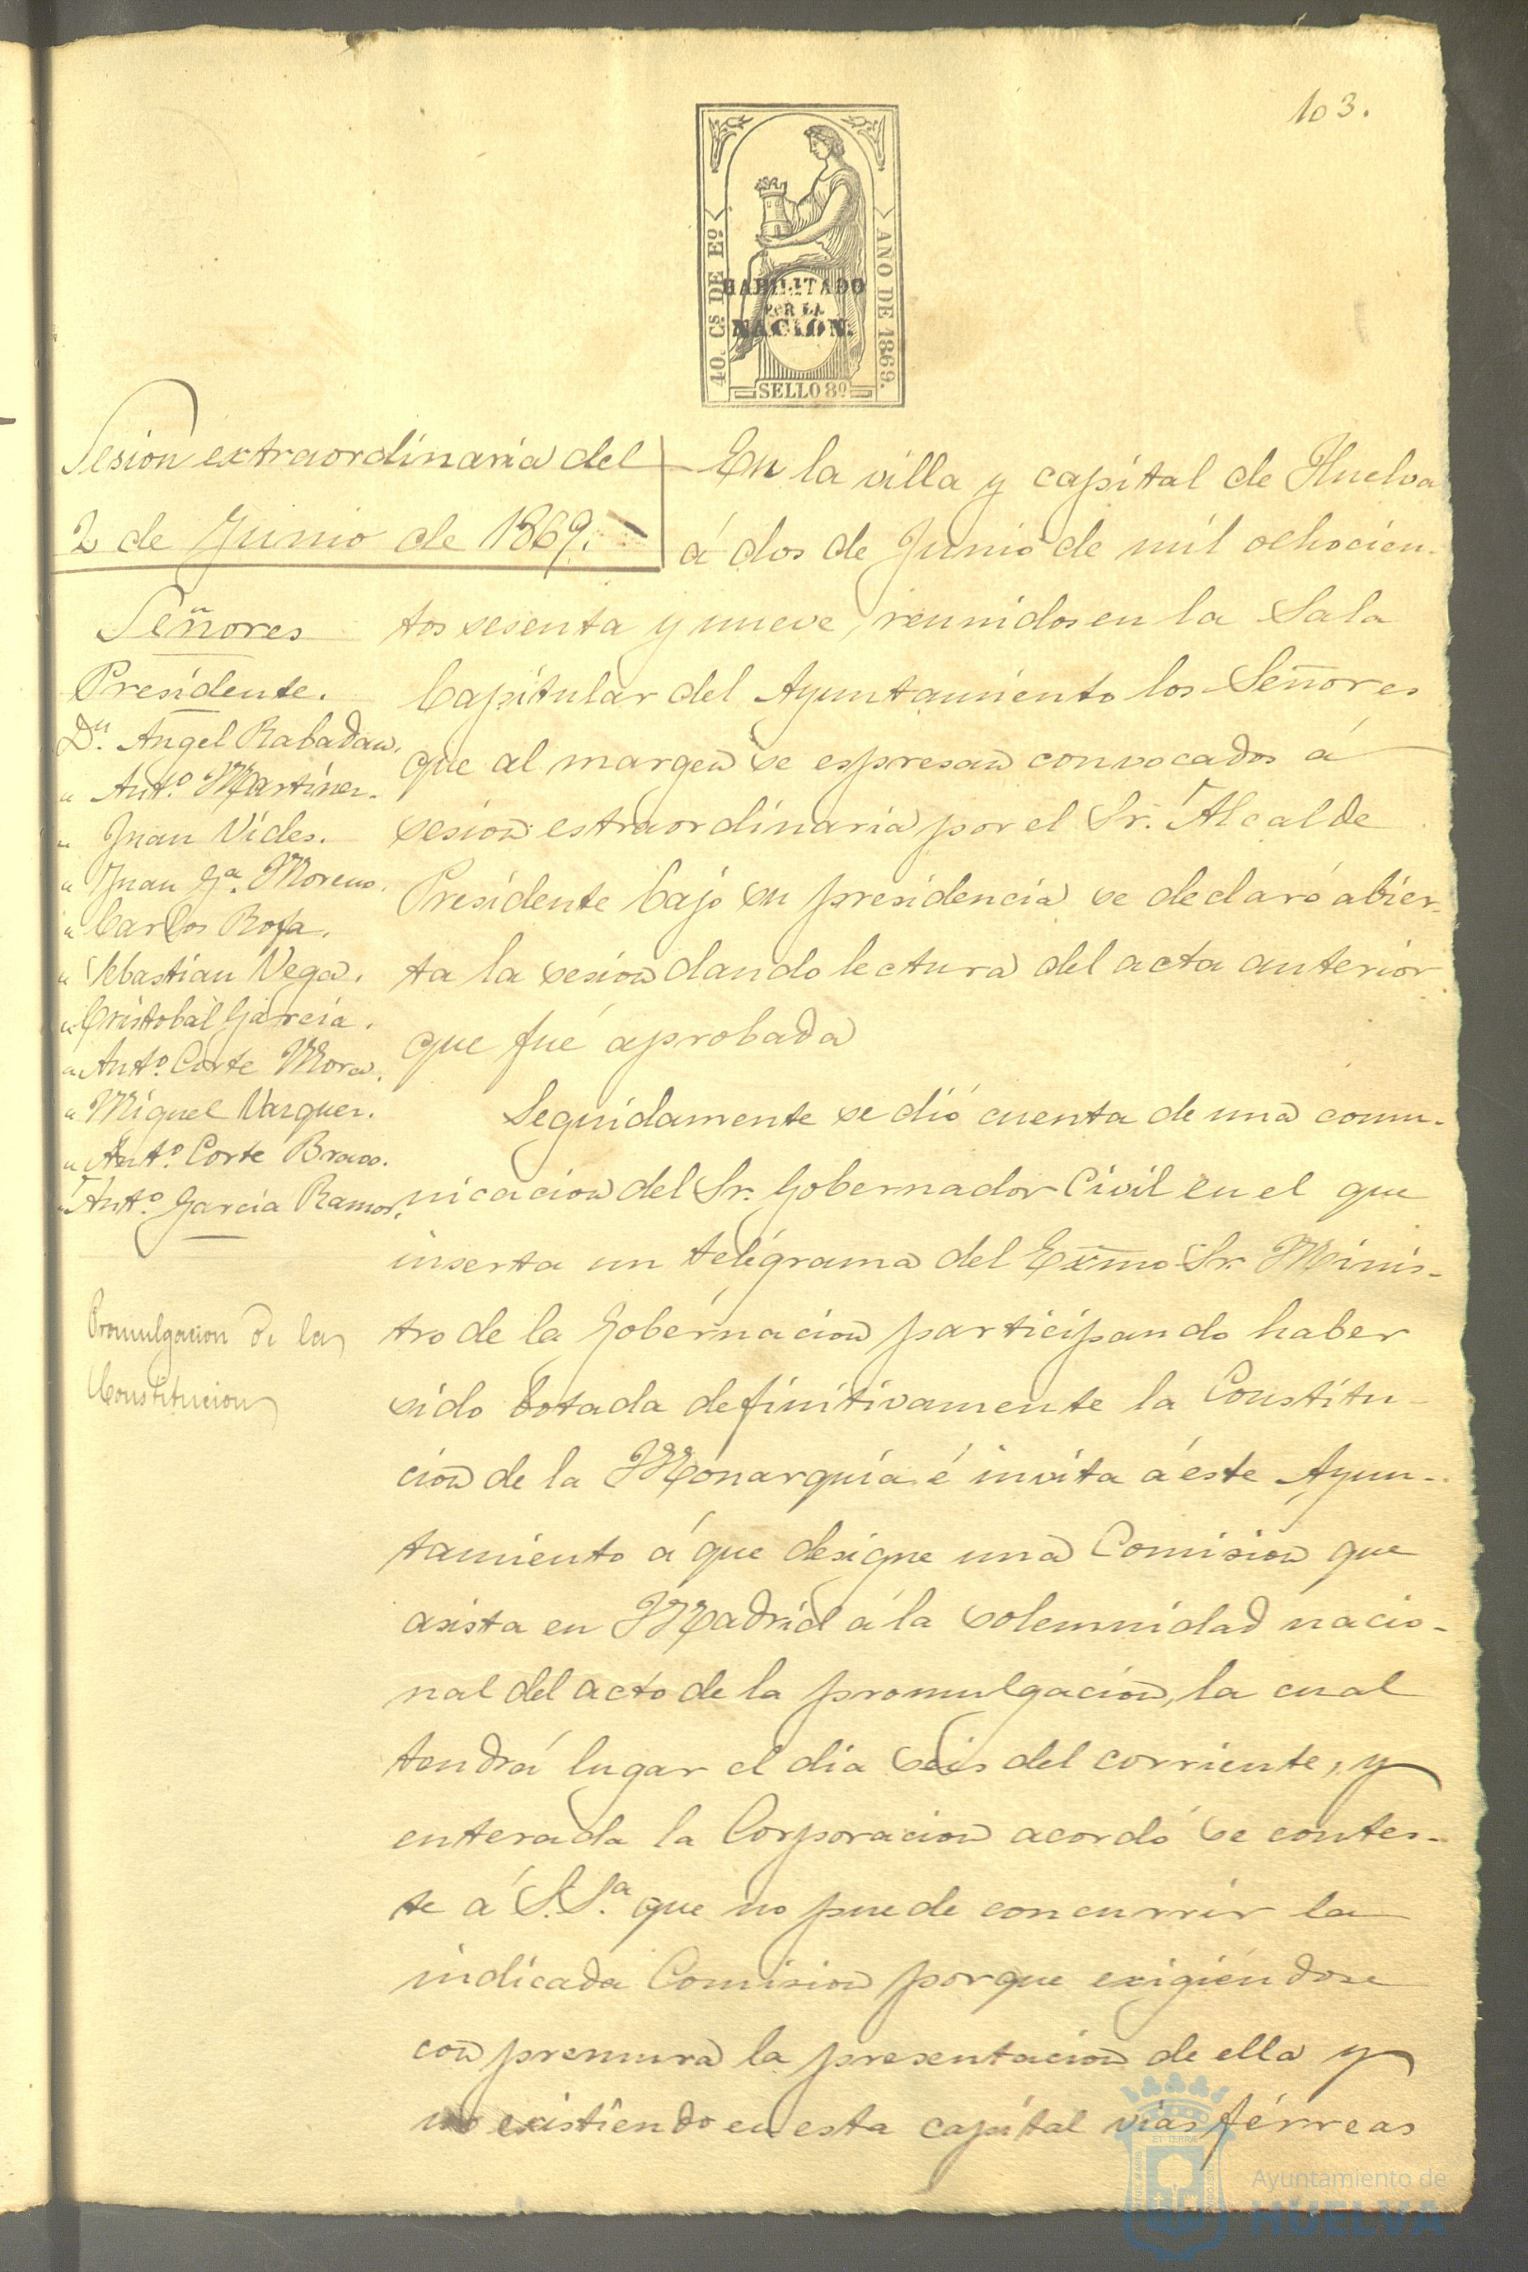 103.
40. Cs. DE Eº.
AÑO DE 1869.
HABILITADO
POR LA
NACION.
SELLO 8º
Sesion extraordinaria del
2 de Junio de 1869.
Señores
Presidente.
Dn. Angel Rabadan.
" Antº. Martinez.
" Juan Vides.
" Juan Gª. Moreno.
" Carlos Rofa.
" Sebastian Vega.
" Cristobal Garcia.
" Antº. Corte Mora.
" Miguel Vazquez.
" Antº. Corte Bravo.
" Antº. Garcia Ramos.
Promulgacion de la
Constitucion
En la villa y capital de Huelva
á dos de Junio de mil ochocien-
tos sesenta y nueve, reunidos en la Sala
Capitular del Ayuntamiento los Señores
que al margen se espresan convocados á
sesion estraordinaria por el Sr. Alcalde
Presidente bajo su presidencia se declaró abier-
ta la sesion dando lectura del acta anterior
que fué aprobada
Seguidamente se dió cuenta de una comu-
nicacion del Sr. Gobernador Civil en el que
inserta un telégrama del Exmo Sr. Minis-
tro de la Gobernacion participando haber
sido botada definitivamente la Constitu-
cion de la Monarquía é invita á éste Ayun-
tamiento á que designe una Comision que
asista en Madrid á la solemnidad nacio-
nal del acto de la promulgacion, la cual
tendrá lugar el dia seis del corriente, y
enterada la Corporacion acordó se contes-
te á S.Sª. que no puede concurrir la
indicada Comision porque exigiéndose
con premura la presentacion de ella y
no existiendo en esta capital vias férreas
Ayuntamiento de
HUELVA